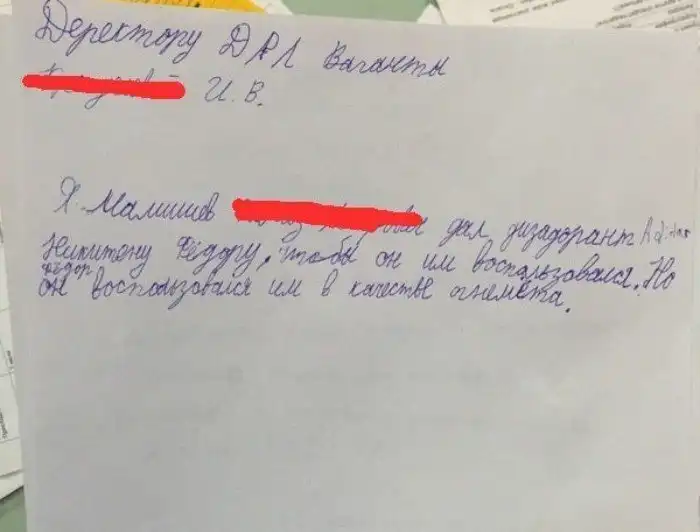 Деректору ДАЛ Ваганты
И. В.
Я. Малишев дал дизадорант
Никитену Фёдору, чтобы он им воспользовался. Но
Фёдор
он воспользовался им в качестве огнемёта.